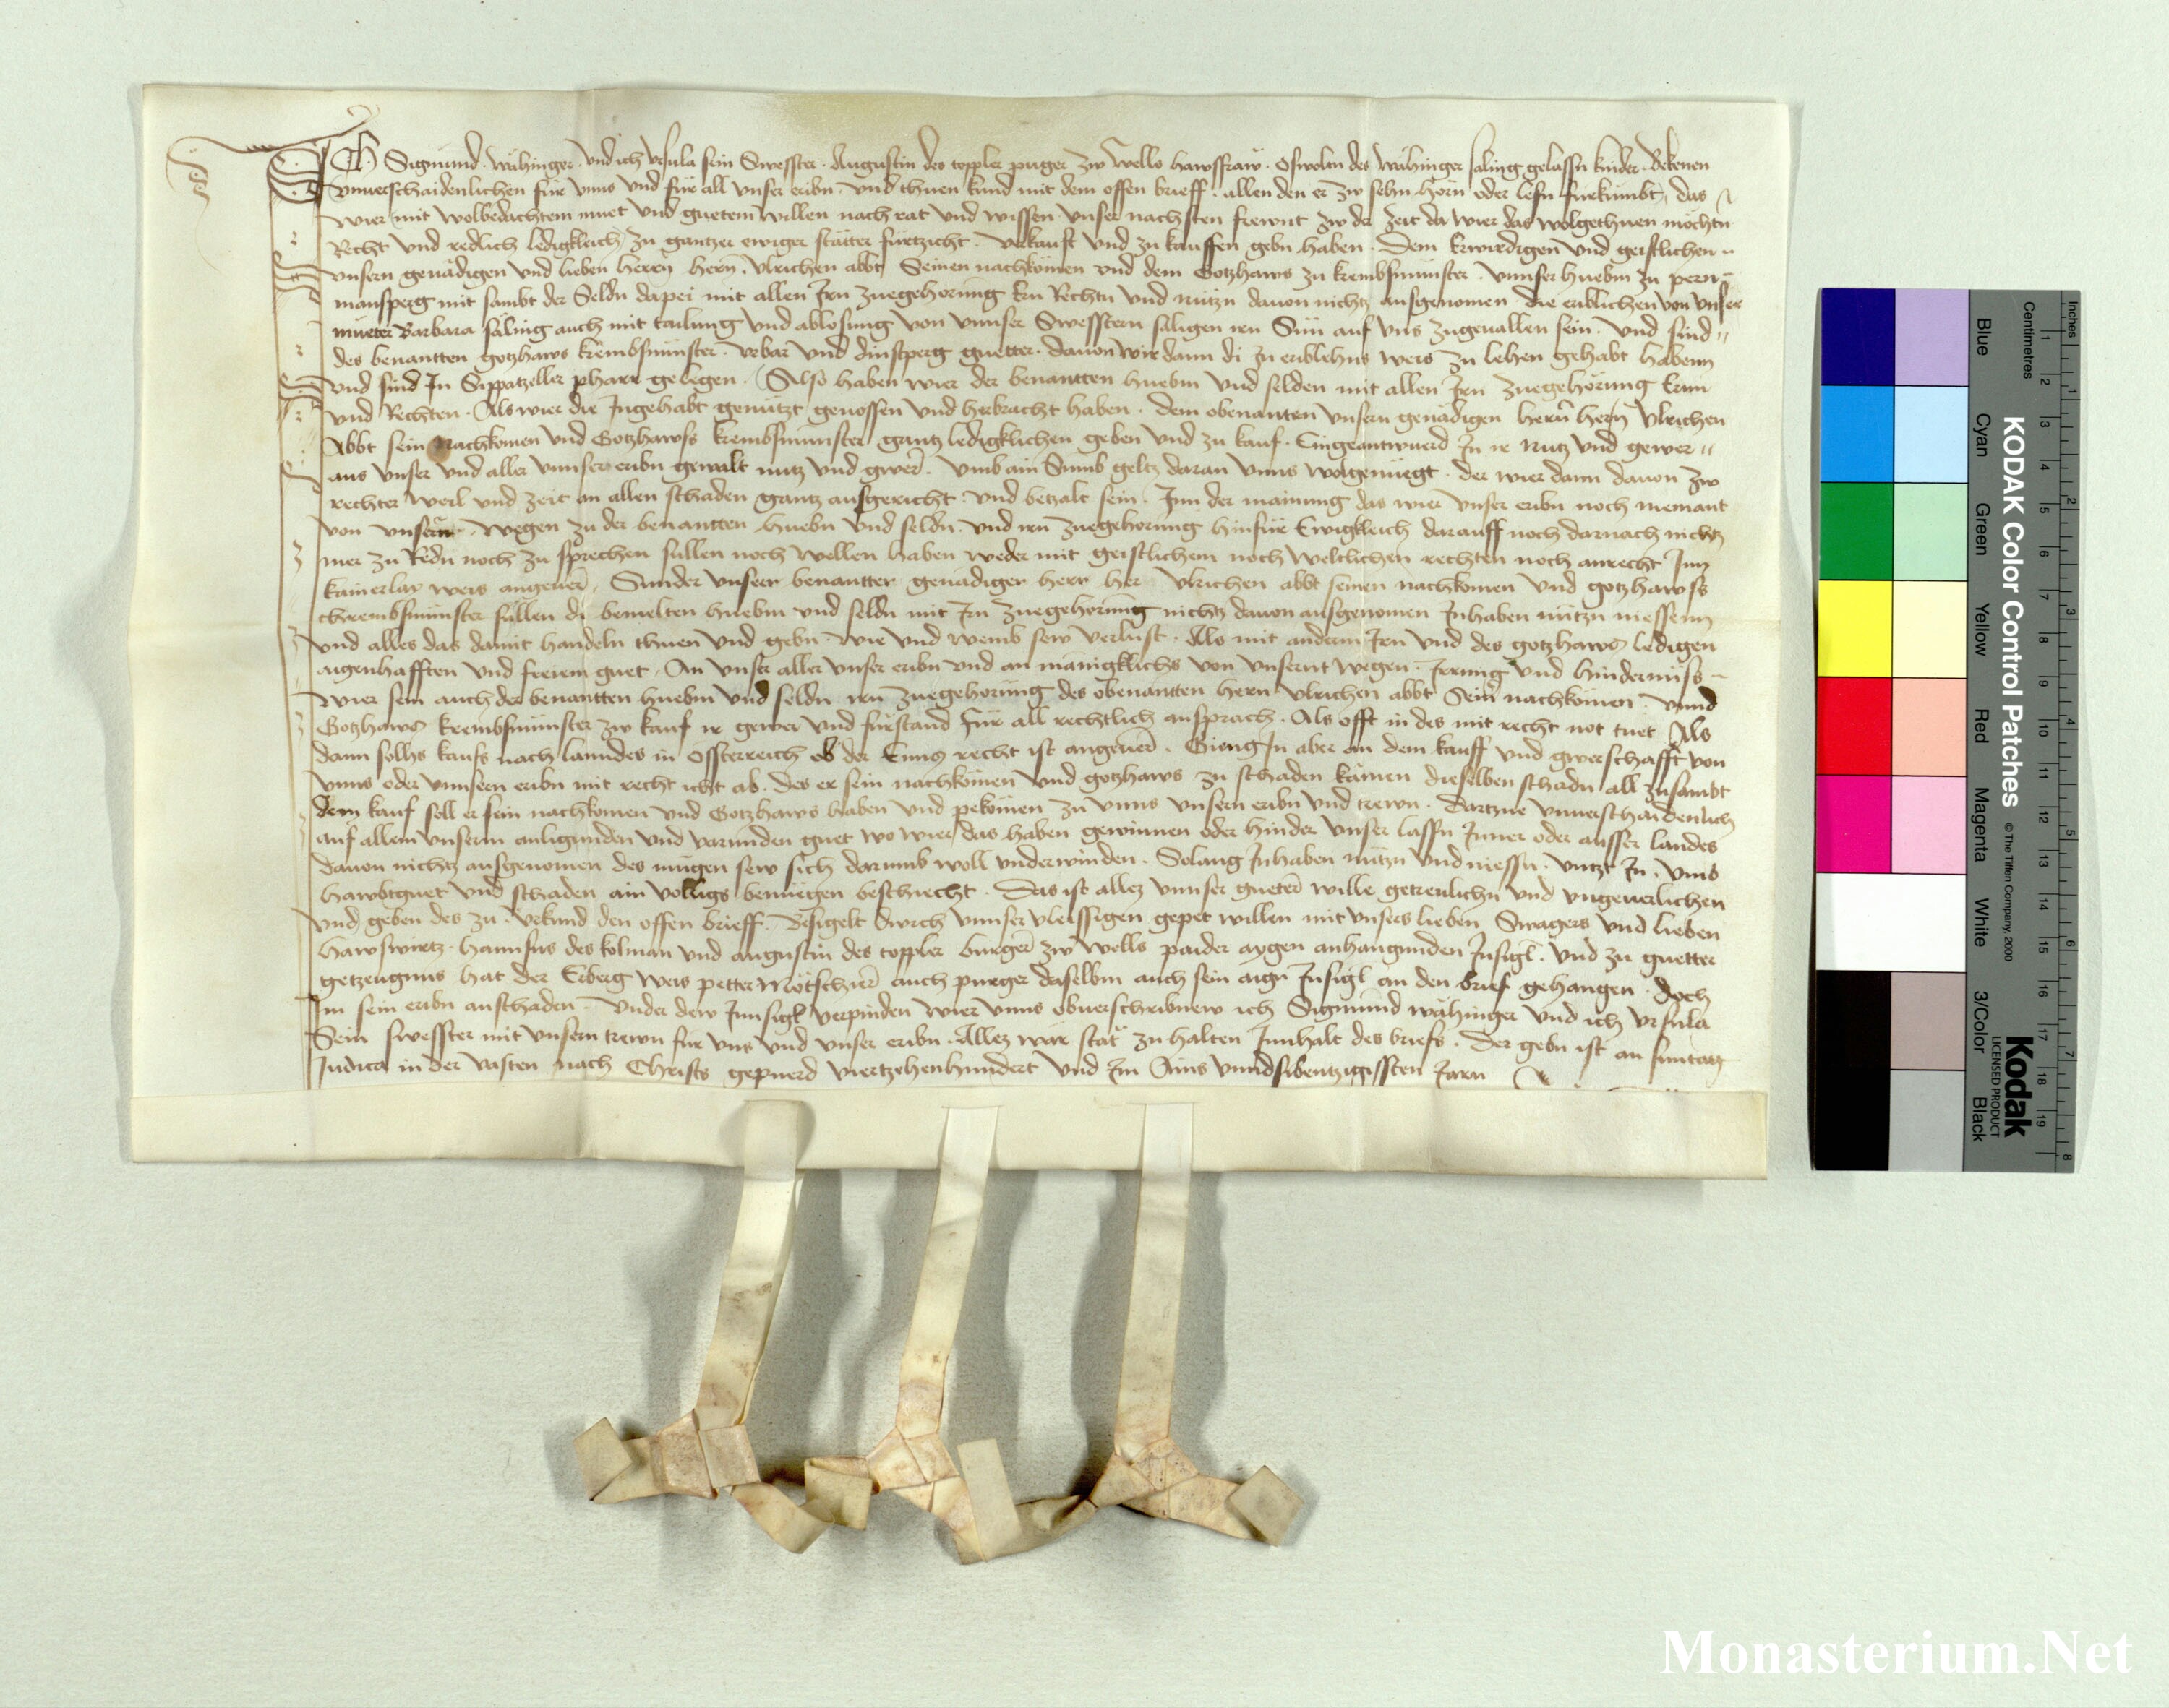 Ich Sigmund Wähinger und ich Vrsula sein Swesster Augustin des toppler purger zw Wells hawsfraw Oswolten des Wähinger säling gelassn kinder Bekenen
vnuerschaidenlichen für vnns vnd für all vnser eribn vnd thuen kund mit dem offen brieff allen den er zw sehn hörn oder lesn fürkumbt das
wier mit wolbedachtem muet vnd guetem willen nach rat vnd wissen vnser nachsten frewnt zw der zeit da wier das wolgethuen mochtn
Recht vnd redlich ledigkleich zu gantzer ewiger stätter fürtzicht verkauft vnd zu kauffen gebn haben Dem Erwirdigen vnd geistlichen
vnsern genädigen vnd lieben herrn hern Vlrichen abbt Seinen nachkömen vnd dem Gotzhaws zu krembsmünster vnnser huebm zu pern
mansperg mit sambt der Seldn dapei mit allen Irn zuegehorung Ern Rechtn vnd nutzn dauon nichtz ausgenomen die eriblichen von vnser
mueter Barbara sälnig auch mit tailung vnd ablosung von vnnser Swesstern säligen irn Sün auf vns zugeuallen sein vnd sind
des benantten gotzhaws krembsmünster vrbar vnd dinstperg guetter dauon wir dann di zu eriblehns weis zu lehen gehabt habenn
vnd sind In Sippatzeller pharr gelegen Also haben wier der benantten huebm vnd selden mit allen Irn zuegehörung Ern
vnd Rechten Als wier die Ingehabt genützt genossen vnd herbracht haben dem obenanten vnsern genädigen hern hern Vlrichen
Abbt sein Nachkomen vnd Gotzhawss krembsmunster gantz ledigklichen geben vnd zu kauf Eingeantwuerd In ir Nutz vnd gewer
aus vnser vnd aller vnnsers eribn gewalt nutz vnd gwer vmb ain Sumb geltz daran vnns wolgenuegt der wier dann dauon zw
rechter weil vnd zeit an allen schaden gantz ausgericht vnd betzalt sein Inn der mainung das wier vnser eribn noch niemant
von vnsern wegen zu der benantten huebn vnd seldn vnd irn zuegehorung hinfür Ewigkleich darauff noch darnach nichtz
mer zu Redn noch zu sprechen sullen noch wellen haben weder mit geistlichem noch weltlichen rechten noch anrecht Inn
kainerlay weis angeuer Sunder vnseer benantter genädiger herr her Vlrichen abbt seinen nachkomen vnd gotzhawss
chrembsmünster sullen di bemelten huebm vnd seldn mit Irn zuegehorung nichtz dauon ausgenomen Inhaben nutzn niessenn
vnd alles das damit handeln thuen vnd gebn wie vnd wemb sew verlust Als mit anderm Irn vnd des gotzhaws ledigen
aigenhafften vnd freiem guet An vnser aller vnser eribn vnd an mänigklichs von vnsernt wegen Irrung vnd hindernüss
Wier sein auch der benantten huebm vnd seldn irn zuegehorung des obenantten hern Vlrichen abbt Sein nachkömen vnnd
Gotzhaws krembsmünster zw kauf ir gewer vnd fürstand für all rechtlich ansprach Als offt in des mit recht not tuet Als
dann solhs kaufs nach lanndes in Ossterreich ob der Enns recht ist angeuer Gieng In aber an dem kauff vnd gwerschafft von
vnns oder vnnsern eribn mit recht icht ab des er sein nachkömen vnd gotzhaws zu schaden kämen dieselben schadn all zusambt
dem kauf soll er sein nachkomen vnd Gotzhaws haben vnd pekomen zu vnns vnsern eribn vnd trewn dartzue vnuerschaidenlich
auf allem vnserm anligunden vnd varunden guet wo wier das haben gewinnen oder hinder vnser lassn Inner oder ausser landes
dauon nichtz ausgenomen des mügen sew sich darumb woll vnderwinden Solang Inhaben nützn vnd niessn vntzt In vmb
hawbtguet vnd schaden ain volligs benuegen beschiecht Das ist allez vnnser gueter wille getreulichn vnd vngeuerlichen
vnd geben des zu vrkund den offen brieff Besigelt durch vnnser vleissigen gepet willen mit vnsers lieben Swagers vnd lieben
hawswirtz hannsns des kolman vnd augustin des toppler burger zw wells paider aygen anhangunden Insigl vnd zu guetter
getzeugnus hat der Erberg weis petter Mötschier auch purger daselbm auch sein aign Insigl an den brief gehangen doch
Im sein eribn anschaden Vnder dew Innsigl verpinden wier vnns obuerschribnew ich Sigmund wähinger vnd ich vrsula
Sein swesster mit vnsern trewn für vns vnd vnser eribn Allez war stät zu halten Innhalt des briefs Der gebn ist an suntag
Judica in der vasten nach Christs gepuerd viertzehenhundert vnd Im Ains vnndsibentzigissten Jarn
Inches
Centimetres
1 2 3 4 5 6 7 8
1 2 3 4 5 6 7 8 9 10 11 12 13 14 15 16 17 18 19
KODAK Color Control Patches
© The Tiffen Company, 2000
Kodak
LICENSED PRODUCT
Blue
Cyan
Green
Yellow
Red
Magenta
White
3/Color
Black
Monasterium.Net